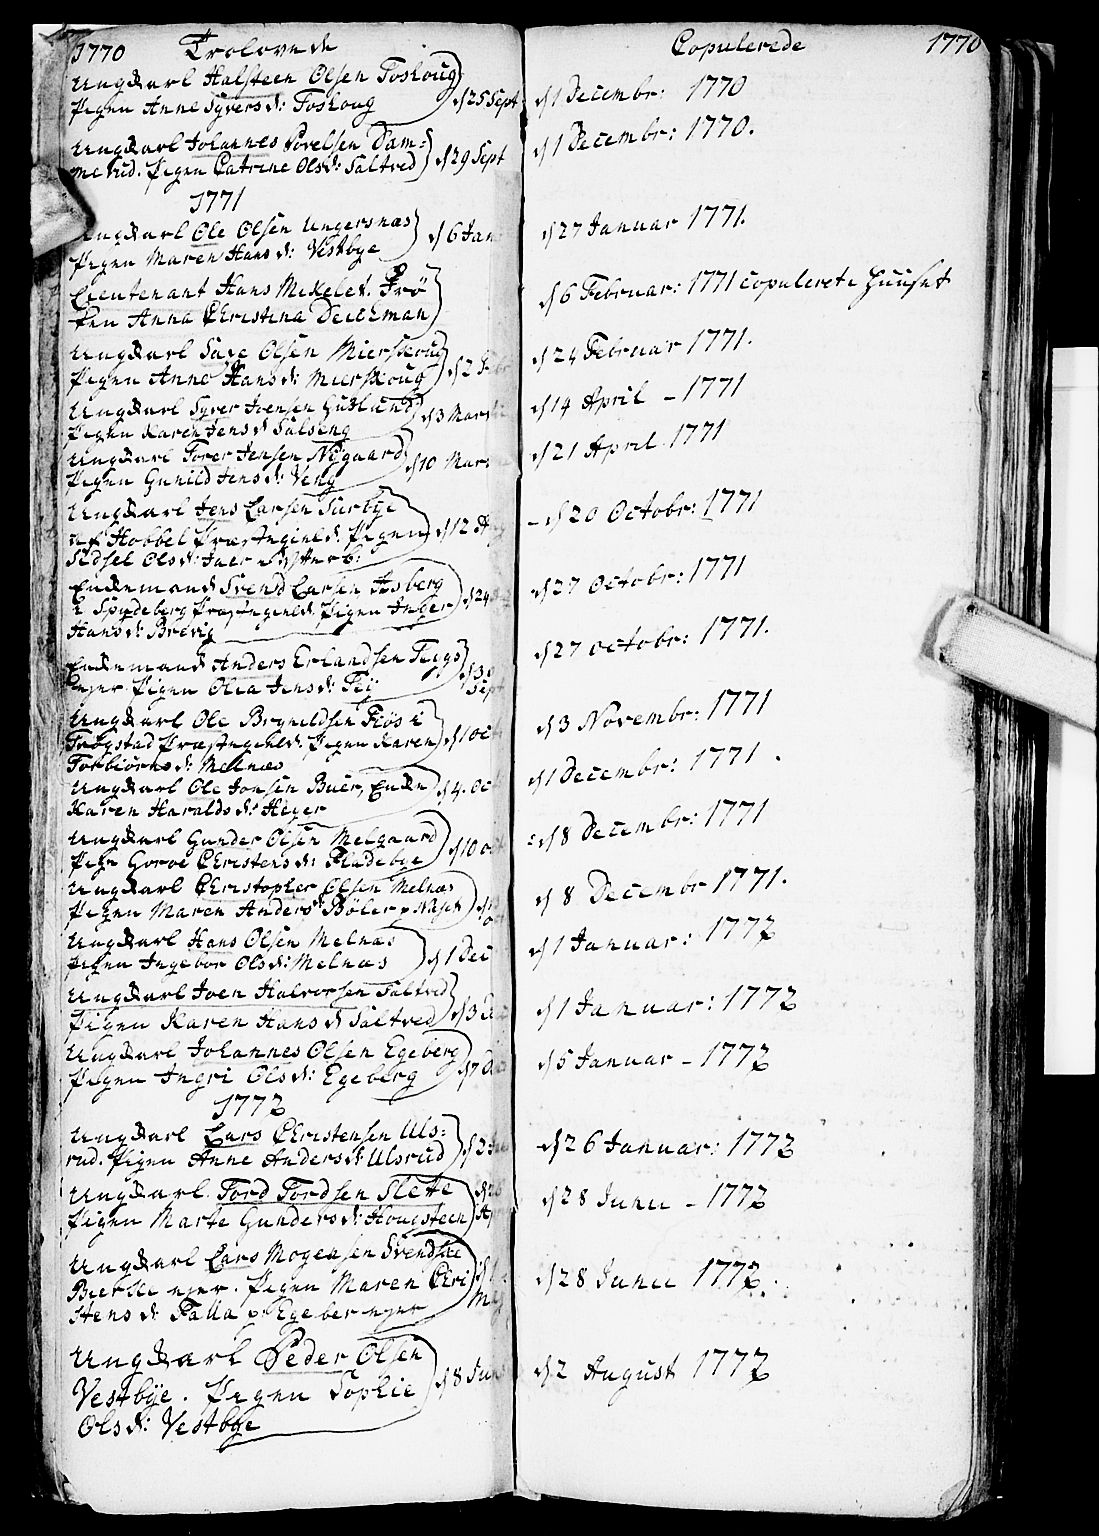 1770 Trolovede
Ungkarl Halsteen Olsen Foshoug
Pigen Anne Syversd: Foshoug d 25 Sept
Ungkarl Johannes Povelsen Dam-
merud. Pigen Catrine Olsd: Saltved d 29 Sept
1771
Ungkarl Ole Olsen Ungersnæs
Pigen Maren Hansd: Vestbye d 6 Jan
Lieutenant Hans Mekelet. Frö
ken Anna Christina Deichman
Ungkarl Olsen Mierskoug
Pigen Anne Hansd: Mierskoug d 2 Febr
Ungkarl Syver Joensen Huslund
Pigen Karen Jensd Salseng d 3 Marti
Ungkarl Torer Jensen Nigaard
Pigen Gunild Jensd: Veng d 10 Mart
Ungkarl Jens Larsen Surbye
af Hobbel Præstegield. Pigen d 12
Sidsel Olsd: Jaer
Enkemand Svend Larsen Asberg
i Spydeberg Præstegield. Pigen Inger d 24
Hansd: Brevig
Enkemand Anders Erlandsen
ejer. Pigen Olea Jensd: d 30 Sept
Ungkarl Ole Brynildsen Fiös i
Trögstad Præstegield. Pigen Karen d 1 oct
Torbiörnsd: Melnæs
Ungkarl Ole Jonsen Buer, Enken d 4. Oc
Karen Haraldsd: Heyer
Ungkarl Gunder Olsen Melgaard
Pige Goroe Christensd: Fladebye d 10 oct
Ungkarl Christopher Olsen Melnæs
Pigen Maren Andersd: Böler
Ungkarl Hans Olsen Melnæs
Pigen Ingebor Olsd: Melnæs d 1 Dec
Ungkarl Joen Halvorsen Saltved
Pigen Karen Hansd Saltved d 3 De
Ungkarl Johannes Olsen Egeberg
Pigen Ingri Olsd: Egeberg d 7 D
1772
Ungkarl Lars Christensen Uls-
rud. Pigen Anne Andersd: Ulsrud d 2
Ungkarl Tord Tordsen Slette
Pigen Marte Gundersd: Hougsteen
Ungkarl Lars Mogensen Svendske
ejer. Pigen Maren Chri
stensd: Falla p: Egeber ejer
Ungkarl Peder Olsen
Vestbye. Pigen Sophie d 8 Jun
Olsd: Vestbye
Copulerede 1770
d 1 Decembr: 1770
d 1 Decembr: 1770.
d 27 Januar 1771.
d 6 Februar: 1771 copuleret i Huuset
d 24 Februar 1771.
d 14 April - 1771
d 21 April 1771
d 20 Octobr: 1771
d 27 Octobr: 1771
d 27 octobr: 1771.
d 3 Novembr: 1771
d 1 Decembr: 1771.
d 8 Decembr: 1771
d 8 Decembr 1771.
d 1 Januar: 1772
d 1 Januar: 1772
d 5 Januar - 1772
d 26 Januar: 1772
d 28 Junii - 1772
d 28 Junii 1772.
d 2 August 1772